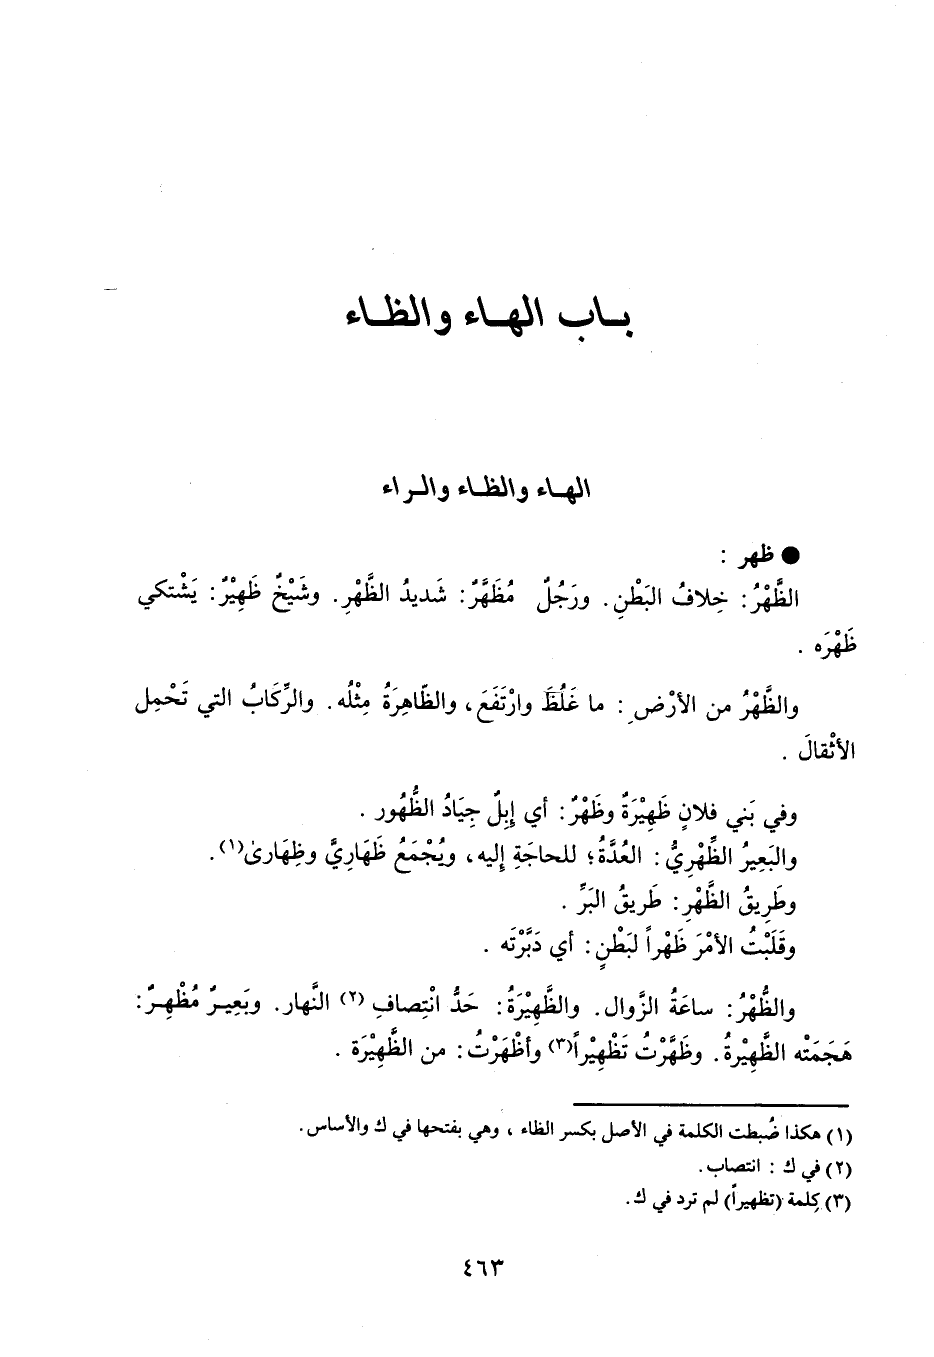 باب الهاء والظاء
الهاء والظاء والراء
● ظهر :
الظَّهْرُ: خِلافُ البَطْنِ. ورَجُلٌ مُظَهَّرٌ: شَديدُ الظَّهْرِ. وشَيْخٌ ظَهِيْرٌ: يَشْتكي
ظَهْرَه .
والظَّهْرُ من الأرْضِ : ما غَلُظَ وارْتَفَعَ، والظّاهِرَةُ مِثْلُه. والرِّكَابُ التي تَحْمِل
الأثْقالَ .
وفي بَني فلانٍ ظَهِيْرَةٌ وظَهْرٌ: أي إِبِلٌ جِيَادُ الظُّهُور .
والبَعِيرُ الظِّهْرِيُّ: العُدَّةُ؛ للحاجَةِ إليه، ويُجْمَعُ ظَهَارِيَّ وظِهَارىٰ(١).
وطَرِيقُ الظَّهْرِ: طَريقُ البَرِّ .
وقَلَبْتُ الأمْرَ ظَهْراً لبَطْنٍ : أي دَبَّرْتَه .
والظُّهْرُ: ساعَةُ الزَّوال. والظَّهِيْرَةُ: حَدُّ انْتِصافِ (٢) النَّهار. وبَعِيرٌ مُظْهِرٌ:
هَجَمَتْه الظَّهِيْرةُ. وظَهَّرْتُ تَظْهِيْراً(٣) وأظْهَرْتُ: من الظَّهِيْرَة .
(١) هكذا ضُبطت الكلمة في الأصل بكسر الظاء ، وهي بفتحها في ك والأساس.
(٢) في ك : انتصاب.
(٣) كلمة (تظهيراً) لم ترد في ك.
٤٦٣